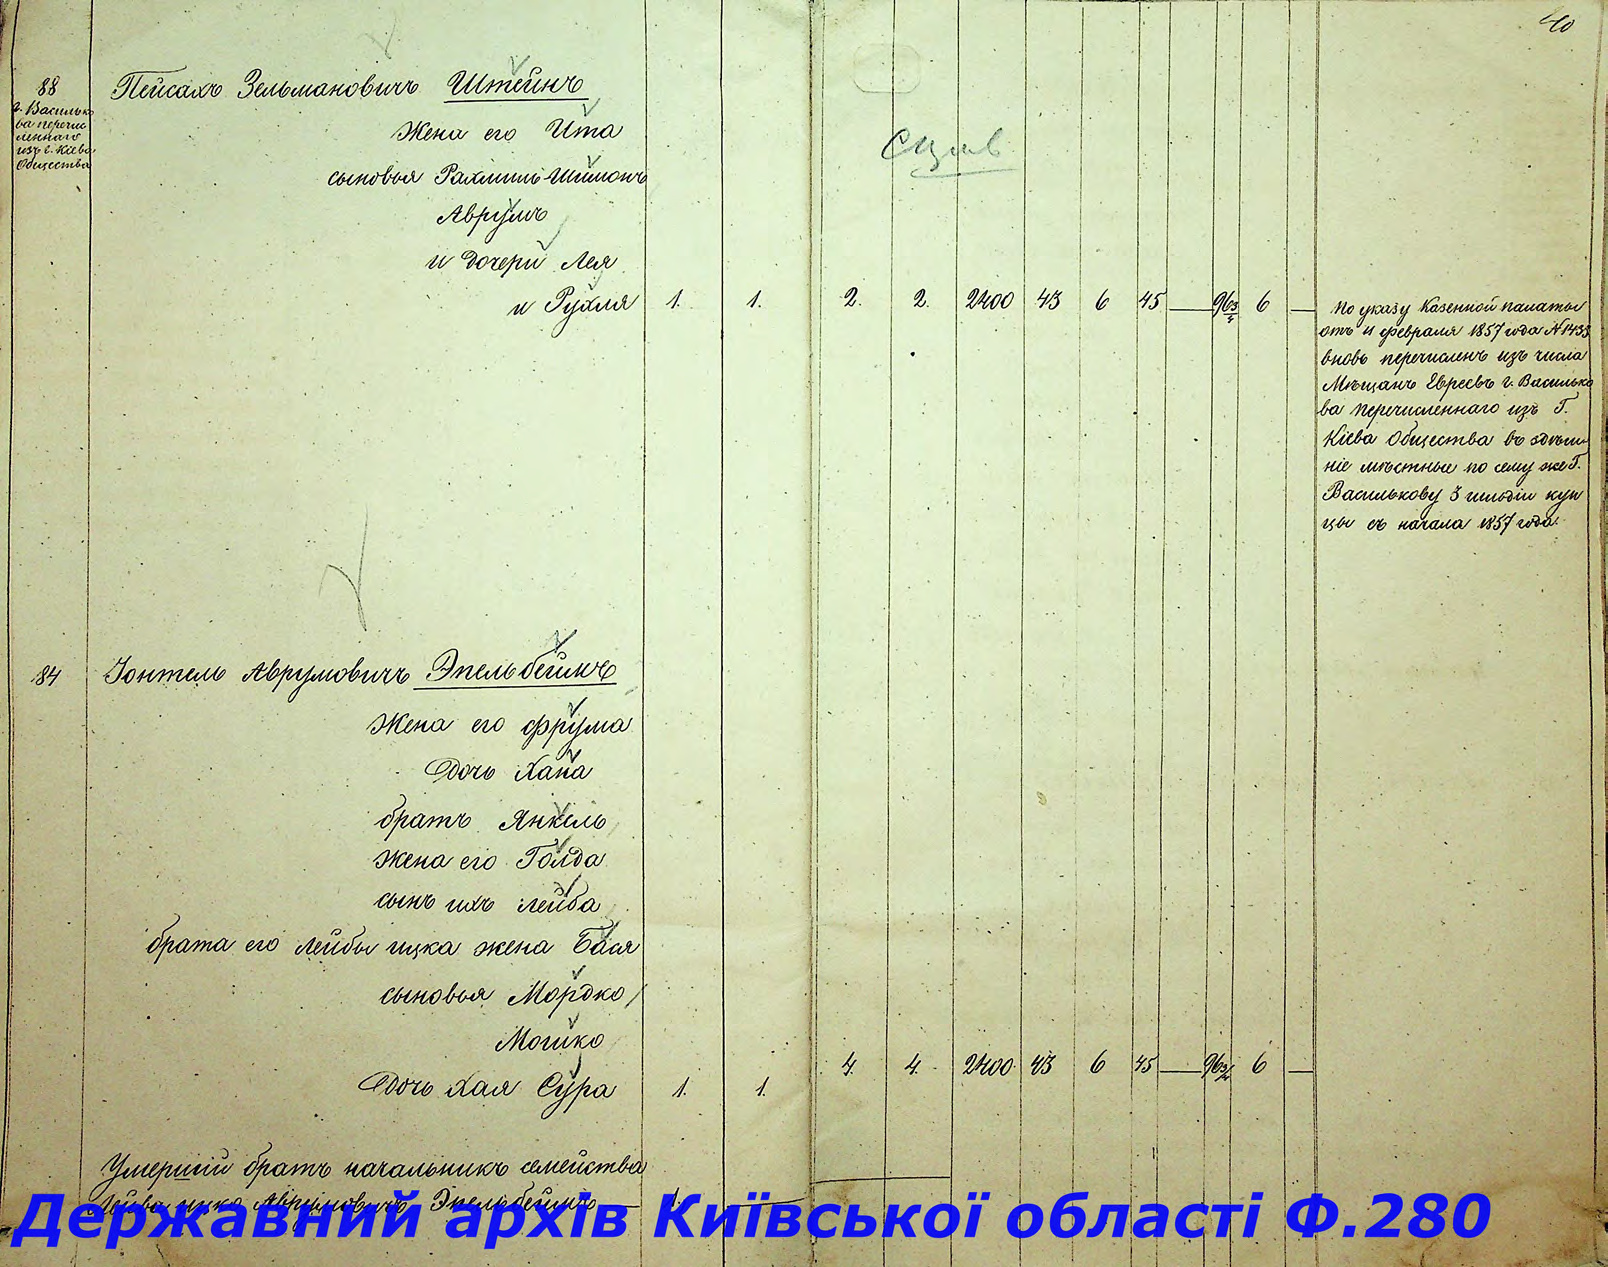 40
88
г. Василько
ва перечис
леннаго
изъ г. Кіева
Общества
Пейсахъ Зельмановичъ Штейнъ
Жена его Ита
сыновья Рахмиль-Шимонъ
Аврумъ
и дочери Лея
и Рухля 1. 1. 2. 2. 2400 43 6 45 — 96 3/4 6 —
По указу Казенной палаты
отъ 11 февраля 1857 года № 1433
вновь перечисленъ изъ числа
Мѣщанъ Евреевъ г. Василько
ва перечисленнаго изъ Г.
Кіева Общества въ
мѣстные по сему же Г.
Василькову 3 гильдіи куп
цы съ начала 1857 года.
84 Іонтель Аврумовичъ Эпельбеймъ
Жена его Фрума
Дочь Хана
братъ Янкель
жена его Голда
сынъ ихъ Лейба
брата его Лейбы ицка жена Бася
сыновья Мордко
Мошко
Дочь Хая Сура 1. 1. 4. 4. 2400 43 6 45 — 96 3/4 6 —
Умершій братъ начальникъ семейства
Лейба ицко Аврумовичъ Эпельбеймъ — 1. —
Державний архів Київської області Ф.280